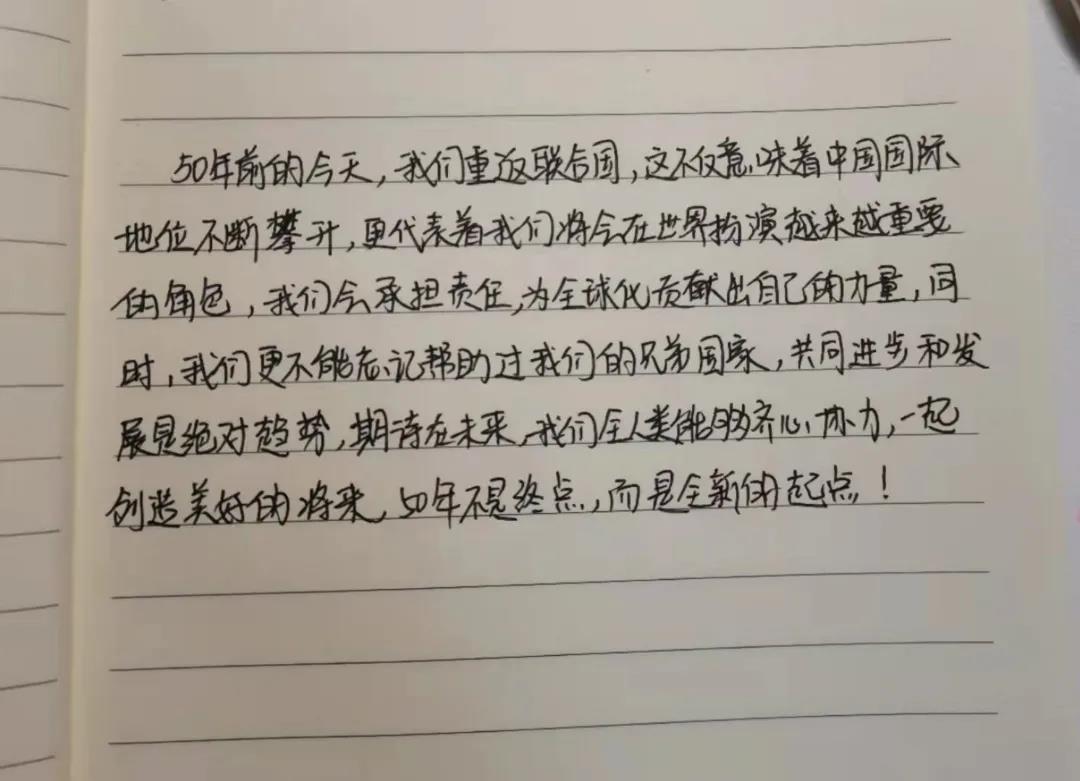 50年前的今天，我们重返联合国，这不仅意味着中国国际
地位不断攀升，更代表着我们将会在世界扮演越来越重要
的角色，我们会承担责任，为全球化贡献出自己的力量，同
时，我们更不能忘记帮助过我们的兄弟国家，共同进步和发
展是绝对趋势，期待在未来，我们全人类能够齐心协力，一起
创造美好的将来，50年不是终点，而是全新的起点！